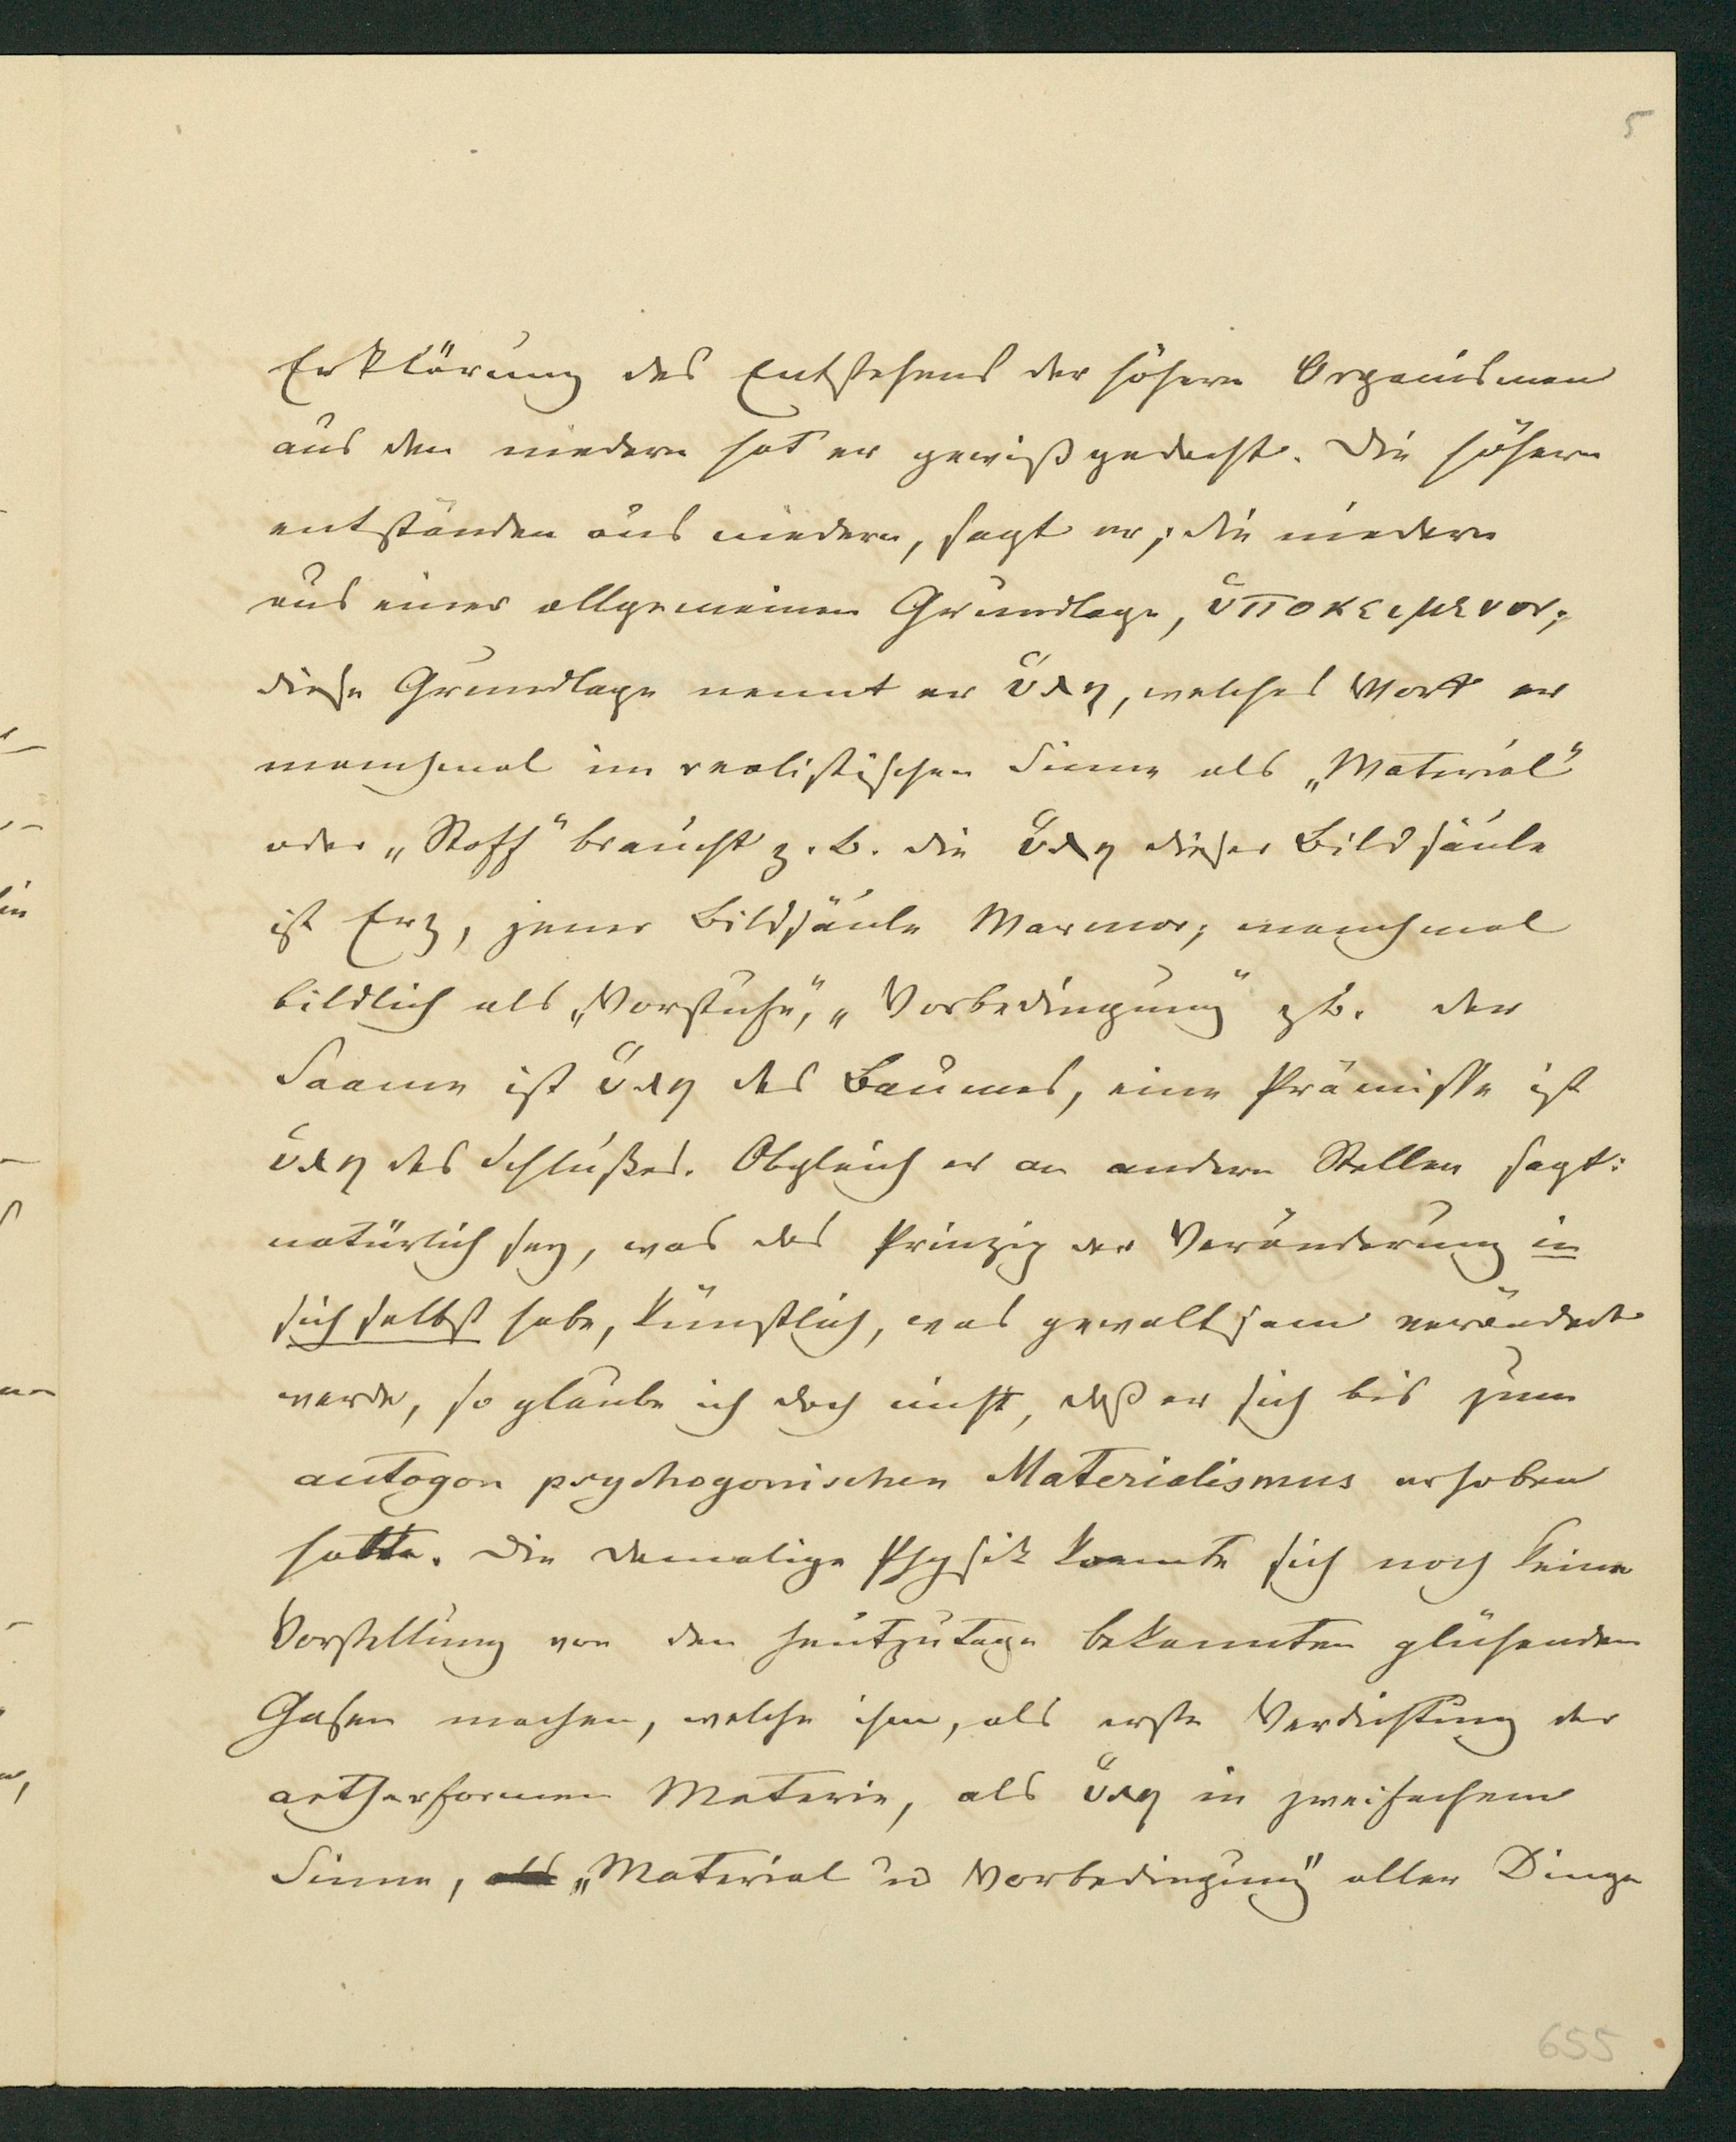 5
Erklärung des Entstehens der höhern Organismen
aus den niedern hat er gewiß gedacht. Die höhern
entständen aus niedern, sagt er; die niedern
aus einer allgemeinen Grundlage, ὑποκειμενον;
diese Grundlage nennt er ὕλη, welches Wort er
manchmal im realistischen Sinne als „Material"
oder „Stoff" braucht z. B. die ὕλη dieser Bildsäule
ist Erz, jener Bildsäule Marmor; manchmal
bildlich als „Vorstufe", „Vorbedingung" z B. der
Saame ist ὕλη des Baumes, eine Prämisse ist
ὕλη des Schlußes. Obgleich er an andern Stellen sagt:
natürlich sey, was das Prinzip der Veränderung in
sich selbst habe, künstlich, was gewaltsam verändert
werde, so glaube ich doch nicht, daß er sich bis zum
autogon psychogonischen Materialismus erhoben
hatte. Die damalige Physik konnte sich noch keine
Vorstellung von den heutzutage bekannten glühenden
Gasen machen, welche ihm, als erste Verdichtung der
aetherformen Materie, als ὕλη in zweifachem
Sinne, als „Material u Vorbedingung" aller Dinge
655